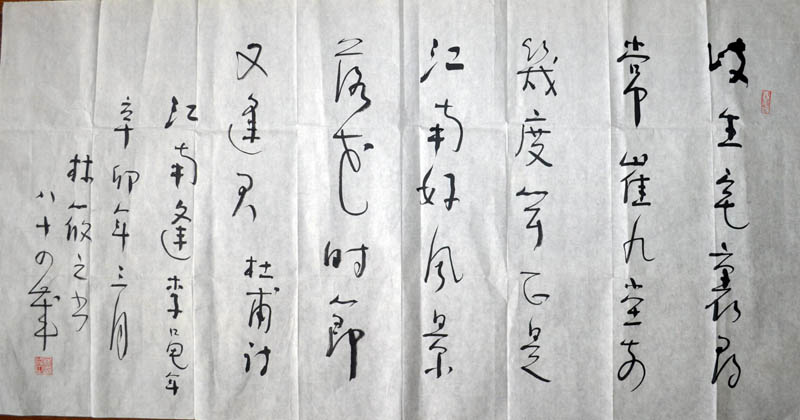 岐王宅裏尋
常崔九堂前
幾度聞正是
江南好風景
落花时節
又逢君 杜甫詩
江南逢李龟年
辛卯年三月
林筱之书
八十四歲